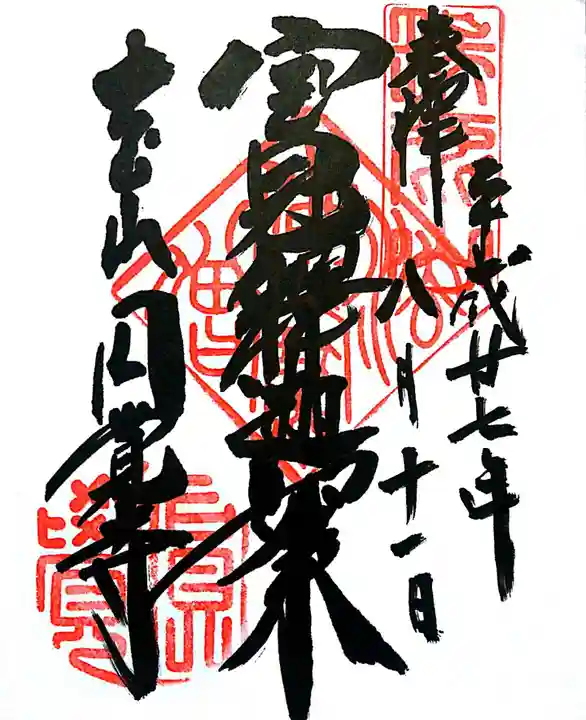 奉拝
平成廿七年
八月十一日
宝冠釋迦如来
大本山円覚寺
圓覺